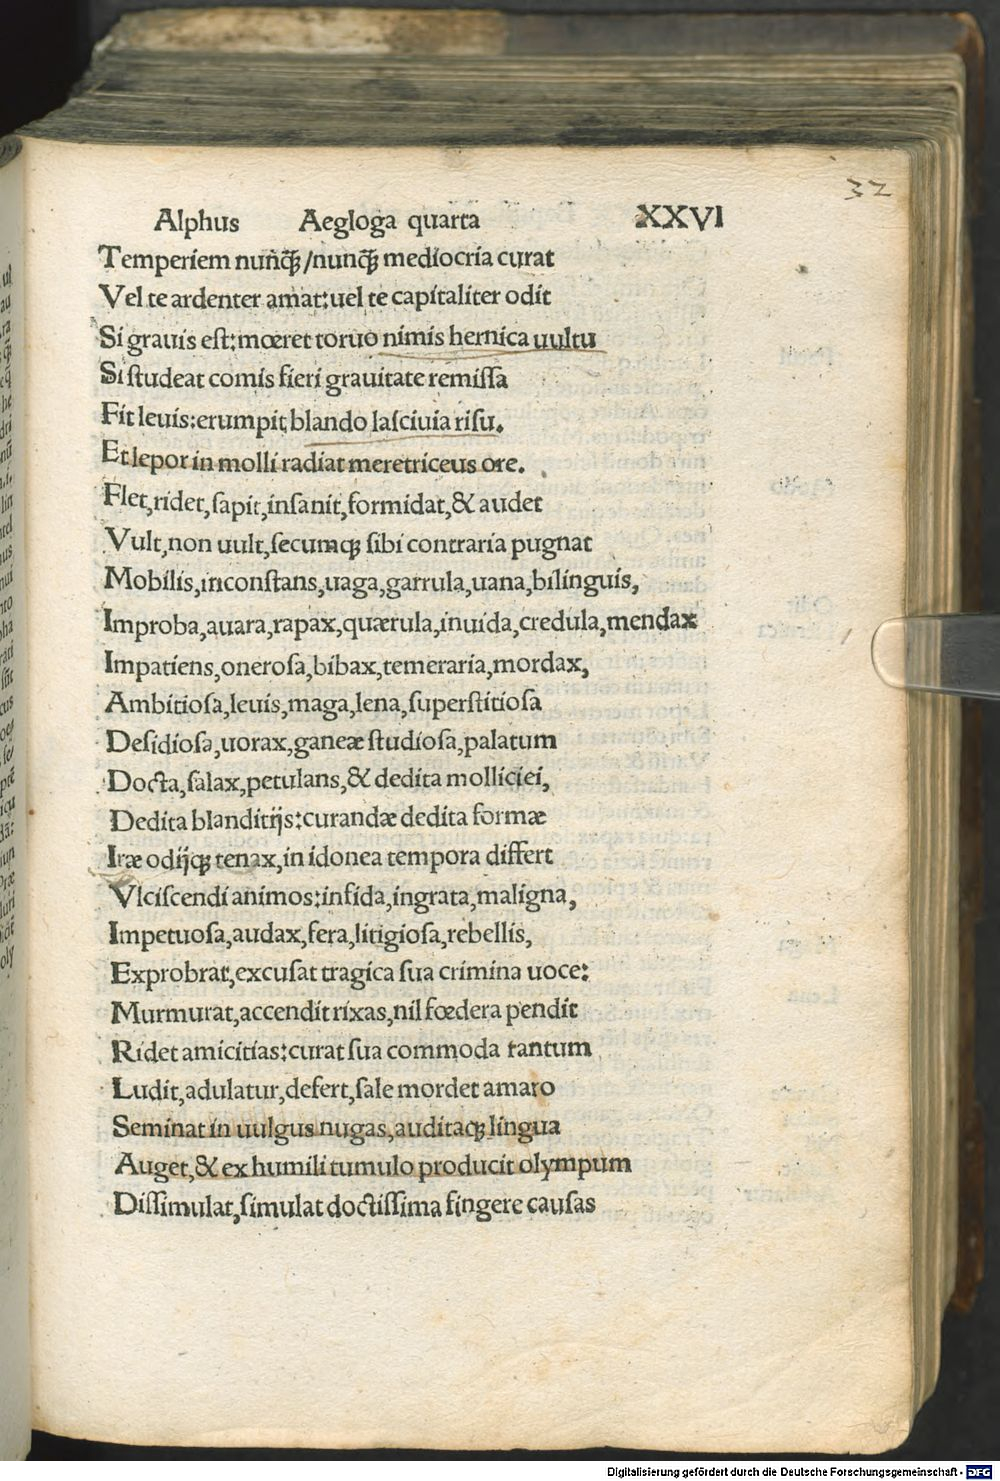 32
Alphus Aegloga quarta XXVI
Temperiem nun̄qꝫ/nunqꝫ̃ mediocria curat
Vel te ardenter amat:uel te capitaliter odit
Si grauis eſt:mœret toruo nimis hernica uultu
Si ſtudeat comis fieri grauitate remiſſa
Fit leuis:erumpit blando laſciuia riſu.
Et lepor in molli radiat meretriceus ore.
Flet,ridet,ſapit,inſanit,formidat,& audet
Vult,non uult,ſecumqꝫ ſibi contraria pugnat
Mobilis,inconſtans,uaga,garrula,uana,bilinguis,
Improba,auara,rapax,quærula,inuida,credula,mendax
Impatiens,oneroſa,bibax,temeraria,mordax,
Ambitioſa,leuis,maga,lena,ſuperſtitioſa
Deſidioſa,uorax,ganeæ ſtudioſa,palatum
Docta,ſalax,petulans,& dedita molliciei,
Dedita blanditijs:curandæ dedita formæ
Iræ odijqꝫ tenax,in idonea tempora differt
Vlciſcendi animos:infida,ingrata,maligna,
Impetuoſa,audax,fera,litigioſa,rebellis,
Exprobrat,excuſat tragica ſua crimina uoce:
Murmurat,accendit rixas,nil fœdera pendit
Ridet amicitias:curat ſua commoda tantum
Ludit,adulatur,defert,ſale mordet amaro
Seminat in uulgus nugas,auditaqꝫ lingua
Auget,& ex humili tumulo producit olympum
Diſſimulat,ſimulat doctiſſima fingere cauſas
Digitalisierung gefördert durch die Deutsche Forschungsgemeinschaft - DFG